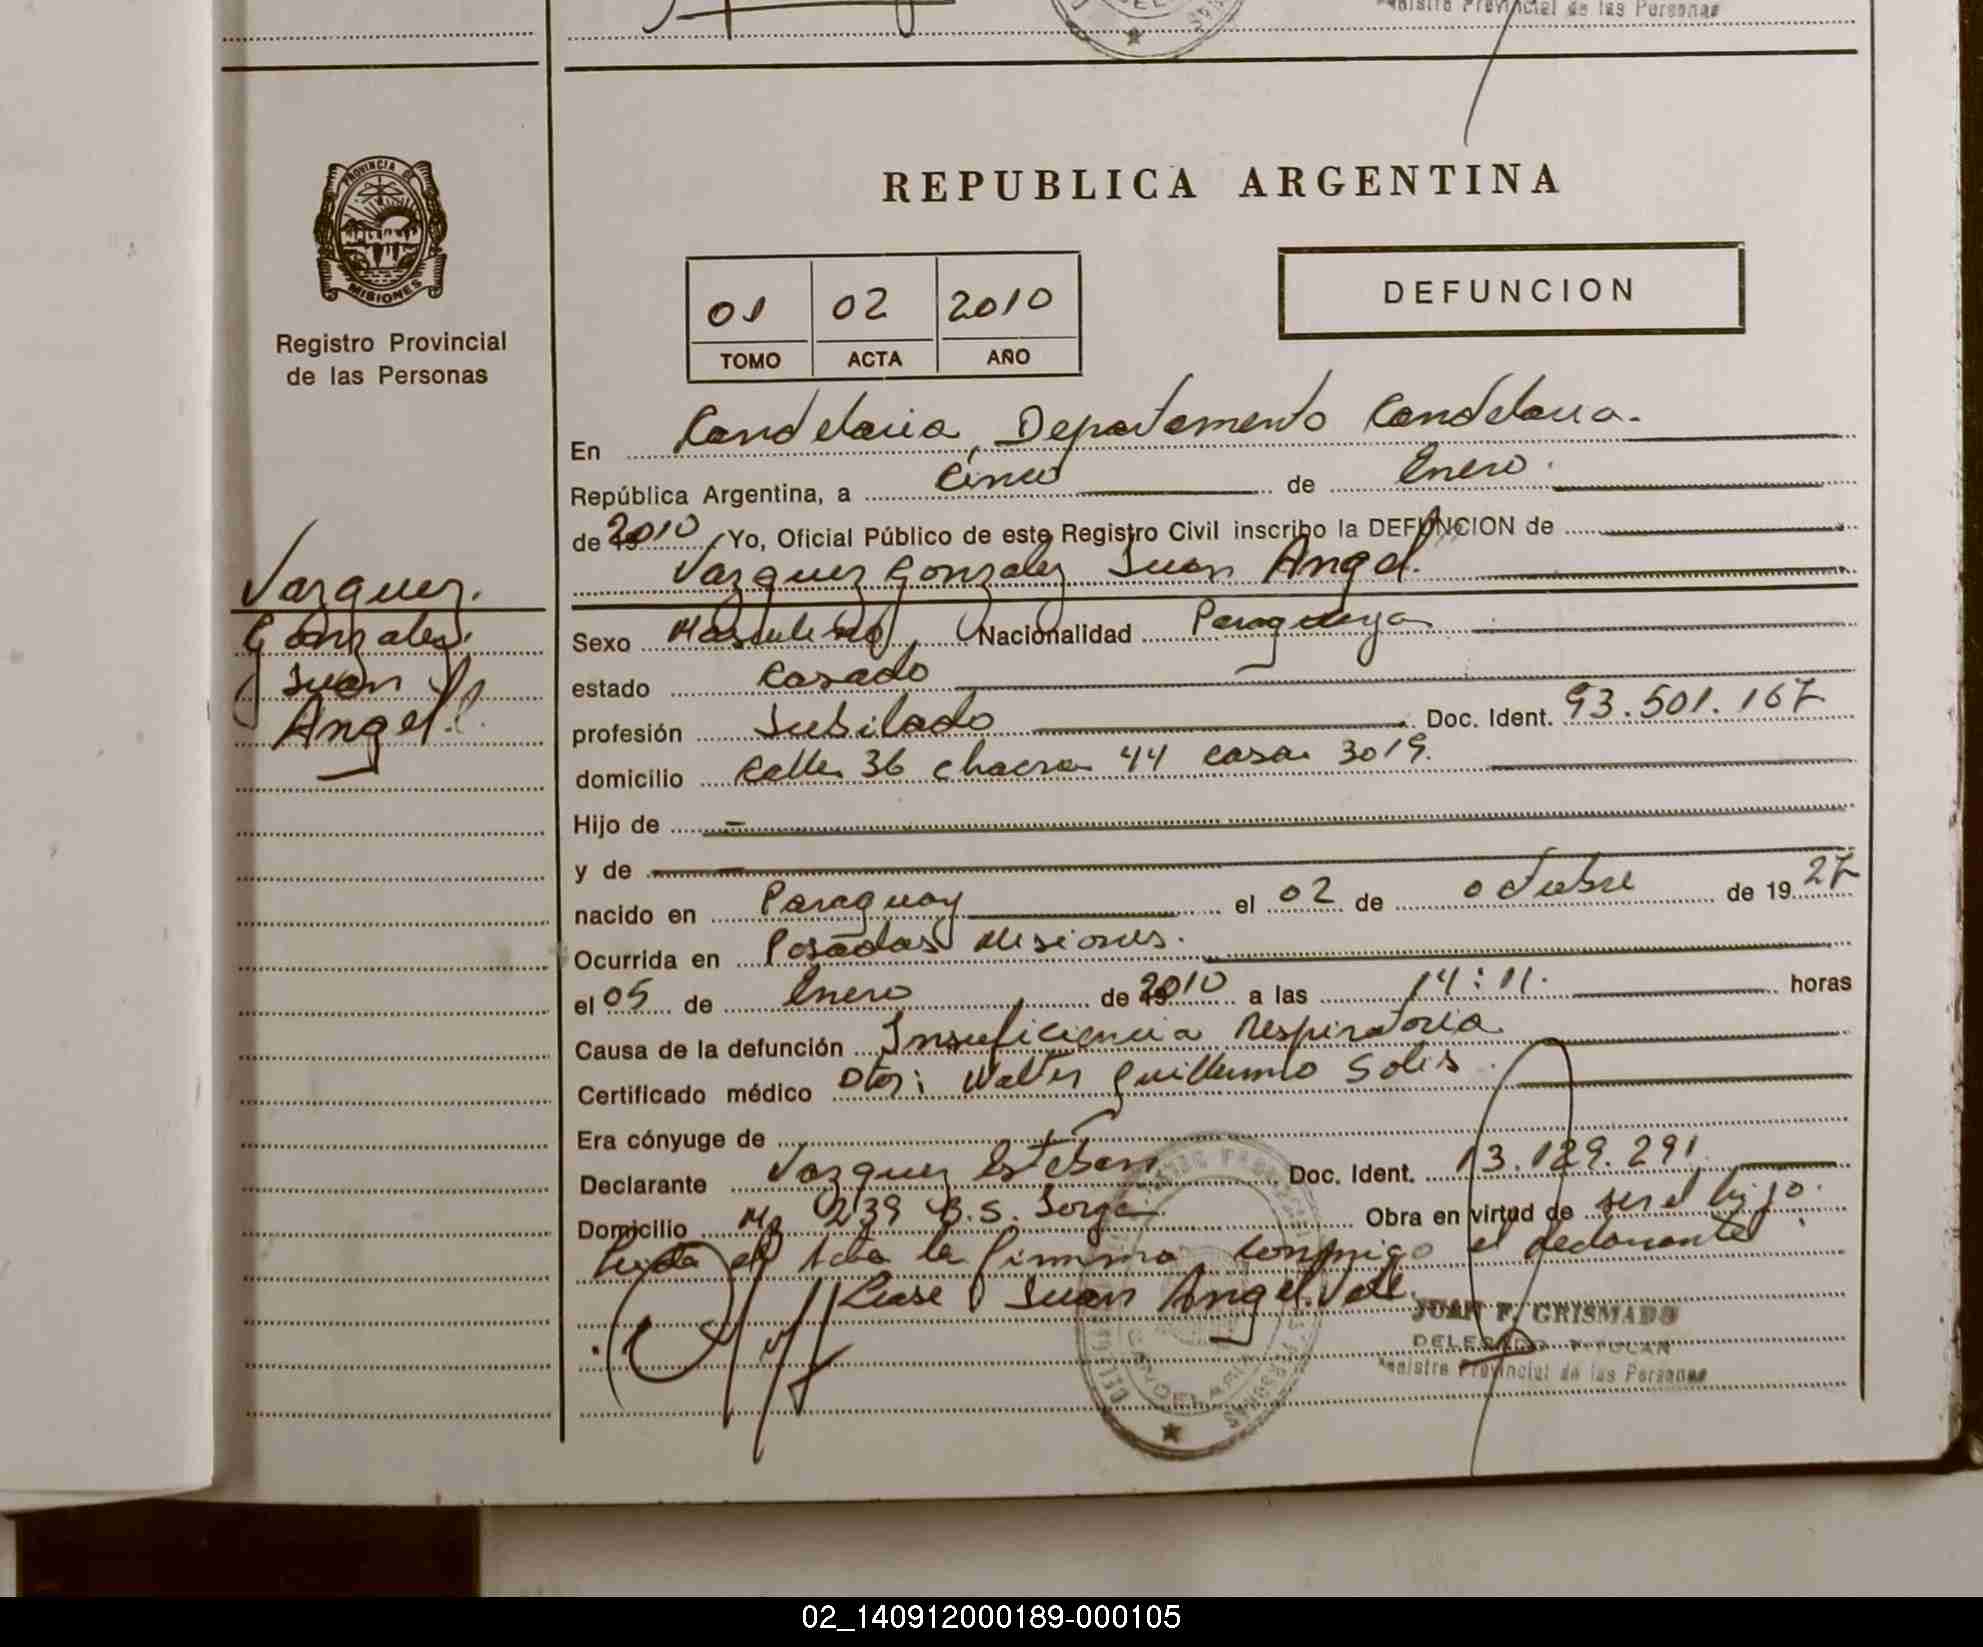 Registro Provincial de las Personas
PROVINCIA DE
MISIONES
Registro Provincial
de las Personas
REPUBLICA ARGENTINA
01 02 2010
TOMO ACTA AÑO
DEFUNCION
En Candelaria, Departamento Candelaria.
República Argentina, a Cinco de Enero.
de 2010 Yo, Oficial Público de este Registro Civil inscribo la DEFUNCION de
Vazquez Gonzalez Juan Angel.
Vazquez.
Gonzalez.
Juan
Angel.
Sexo Masculino Nacionalidad Paraguaya
estado Casado
profesión Jubilado Doc. Ident. 93.501.167
domicilio Calle 36 chacra 44 casa 3019.
Hijo de
y de
nacido en Paraguay el 02 de octubre de 1927
Ocurrida en Posadas Misiones.
el 05 de Enero de 2010 a las 14:11. horas
Causa de la defunción Insuficiencia Respiratoria
Certificado médico Dtor: Walter Guillermo Solis
Era cónyuge de
Declarante Vazquez Esteban Doc. Ident. 13.129.291
Domicilio Mz 239 B.S. Jorge Obra en virtud de ser el hijo.
Leida el Acta la firma conmigo el declarante
Lease Juan Angel. Vale.
JUAN F. GRISMADO
DELEGADO TITULAR
Registro Provincial de las Personas
CANDELARIA
02_140912000189-000105